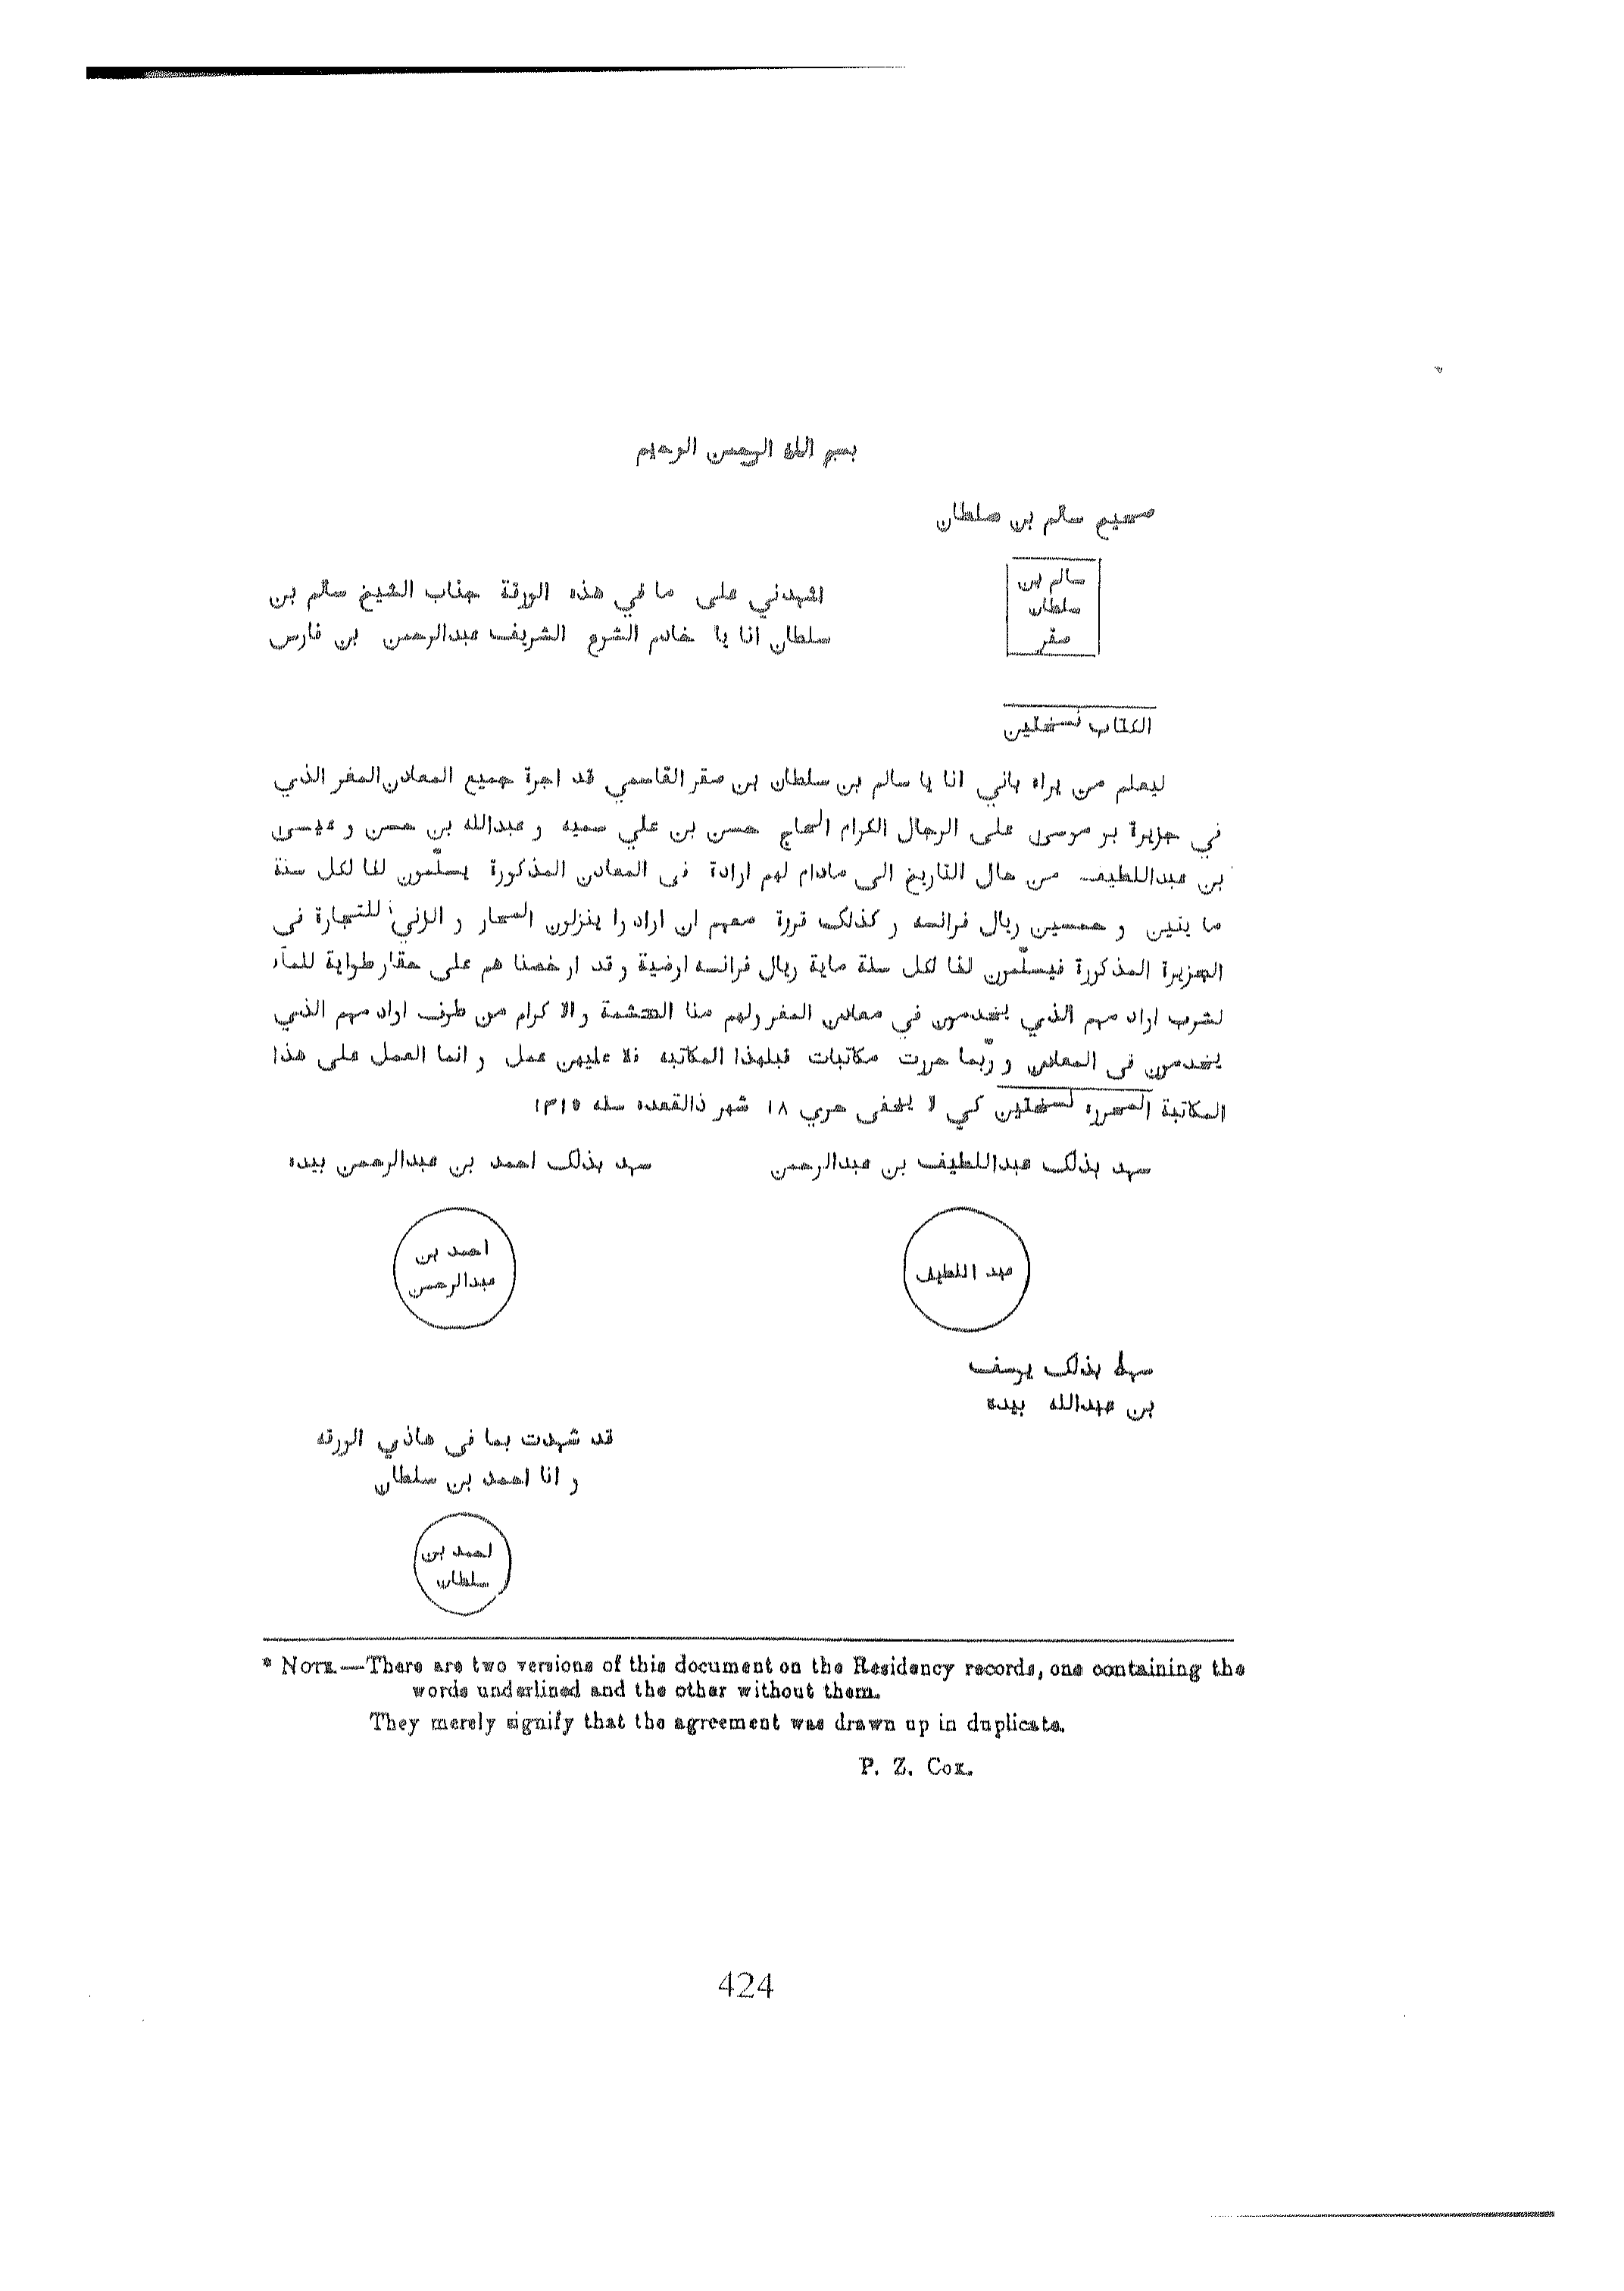 بسم الله الرحمن الرحيم
صحيح سالم بن سلطان
سالم بن
سلطان
صقر
اشهدني على ما في هذه الورقة جناب الشيخ سالم بن
سلطان انا يا خادم الشرع الشريف عبدالرحمن بن فارس
الكتاب نسختين
ليعلم من يراه باني انا يا سالم بن سلطان بن صقر القاسمي قد اجرة جميع المعادن المغر الذي
في جزيرة بو موسى على الرجال الكرام الحاج حسن بن علي سميه و عبدالله بن حسن و عيسى
بن عبداللطيف من حال التاريخ الى مادام لهم ارادة فى المعادن المذكورة يسلّمون لنا لكل سنة
ما يتين و خمسين ريال فرانسه و كذلك قررة معهم ان ارادوا ينزلون المحار و الزني للتجارة فى
الجزيرة المذكورة فيسلّمون لنا لكل سنة ماية ريال فرانسه ارضية و قد ارخصنا هم على حفار طواية للمآء
لشرب اولاد مهم الذي يخدمون في معادن المغر ولهم منا الحشمة و الا كرام من طرف اولاد مهم الذي
يخدمون فى المعادن و ربّما حررت مكاتبات قبلهذا المكاتبه فلا عليهن عمل و انما العمل على هذا
المكاتبة المحرره نسختين كي لا يخفى حري ١٨ شهر ذالقعده سنه ١٣١٥
سهد بذلك عبداللطيف بن عبدالرحمن
سهد بذلك احمد بن عبدالرحمن بيده
عبد اللطيف
احمد بن
عبدالرحمن
سهد بذلك يوسف
بن عبدالله بيده
قد شهدت بما فى هاذي الورقه
و انا احمد بن سلطان
احمد بن
سلطان
* NOTE.—There are two versions of this document on the Residency records, one containing the
words underlined and the other without them.
They merely signify that the agreement was drawn up in duplicate.
P. Z. Cox.
424